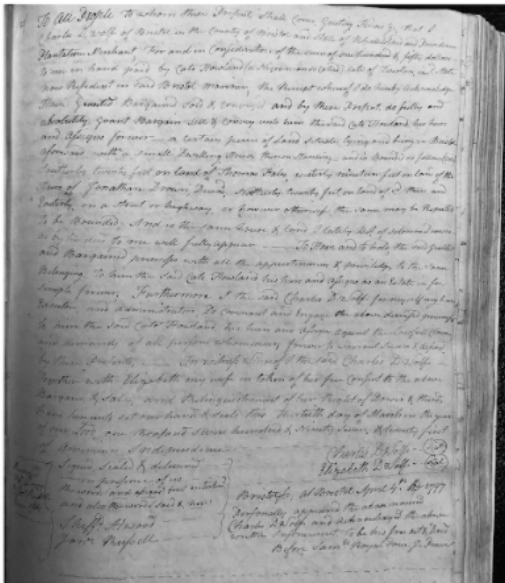 To All People to whom these Presents Shall Come Greeting Know ye that I
Charles DWolf of Bristol in the County of Bristol and State of Rhode Island and Providence
Plantations Merchant For and in Consideration of the sum of one hundred & fifty dollars
to me in hand paid by Cato Howland (a Negro man so called) late of Taunton, and State
now Resident in said Bristol the Receipt whereof I do hereby acknowledge
Have Granted Bargained Sold & conveyed and by these Presents do fully and
absolutely Grant Bargain Sell & Convey unto him the said Cato Howland his heirs
and Assigns forever a certain piece of Land Situate lying and being in Bristol
aforesaid with a small Dwelling House thereon Standing and is Bounded as follows
Southerly twenty feet on land of Thomas westerly nineteen feet on land of the
Heirs of Jonathan Drown, Northerly twenty feet on land of and
Easterly on a Street or highway, or however otherwise the same may be Reputed
to be Bounded And is the same house & land I lately
as by the deed to me will fully appear To Have and to hold the said Granted
and Bargained premises with all the appurtenances & privileges to the same
Belonging To him the said Cato Howland his heirs and Assigns as an Estate in fee
Simple forever. Furthermore I the said Charles DWolf for myself my heirs
Executors and Administrators Do Covenant and Engage the above demised premises
to him the said Cato Howland his heirs and Assigns against the lawful Claims
and demands of all persons whomsoever forever to warrant Secure & defend
by these Presents, In witness whereof I the said Charles DWolf
Together with Elizabeth my wife in token of her free Consent to the above
Bargain & Sale, and Relinquishment of her Right of Dower & thirds
hereunto set our hands & seals this day of March in the year
of our Lord one thousand Seven hundred & Ninety Seven, & twenty first
of American Independence
Signed, Sealed & delivered
in presence of us
Charles DWolf
Elizabeth DWolf
Bristol Ss. At Bristol April 1797
Personally appeared the above named
Charles DWolf and acknowledged the above
written Instrument to be his free act & Deed
Before